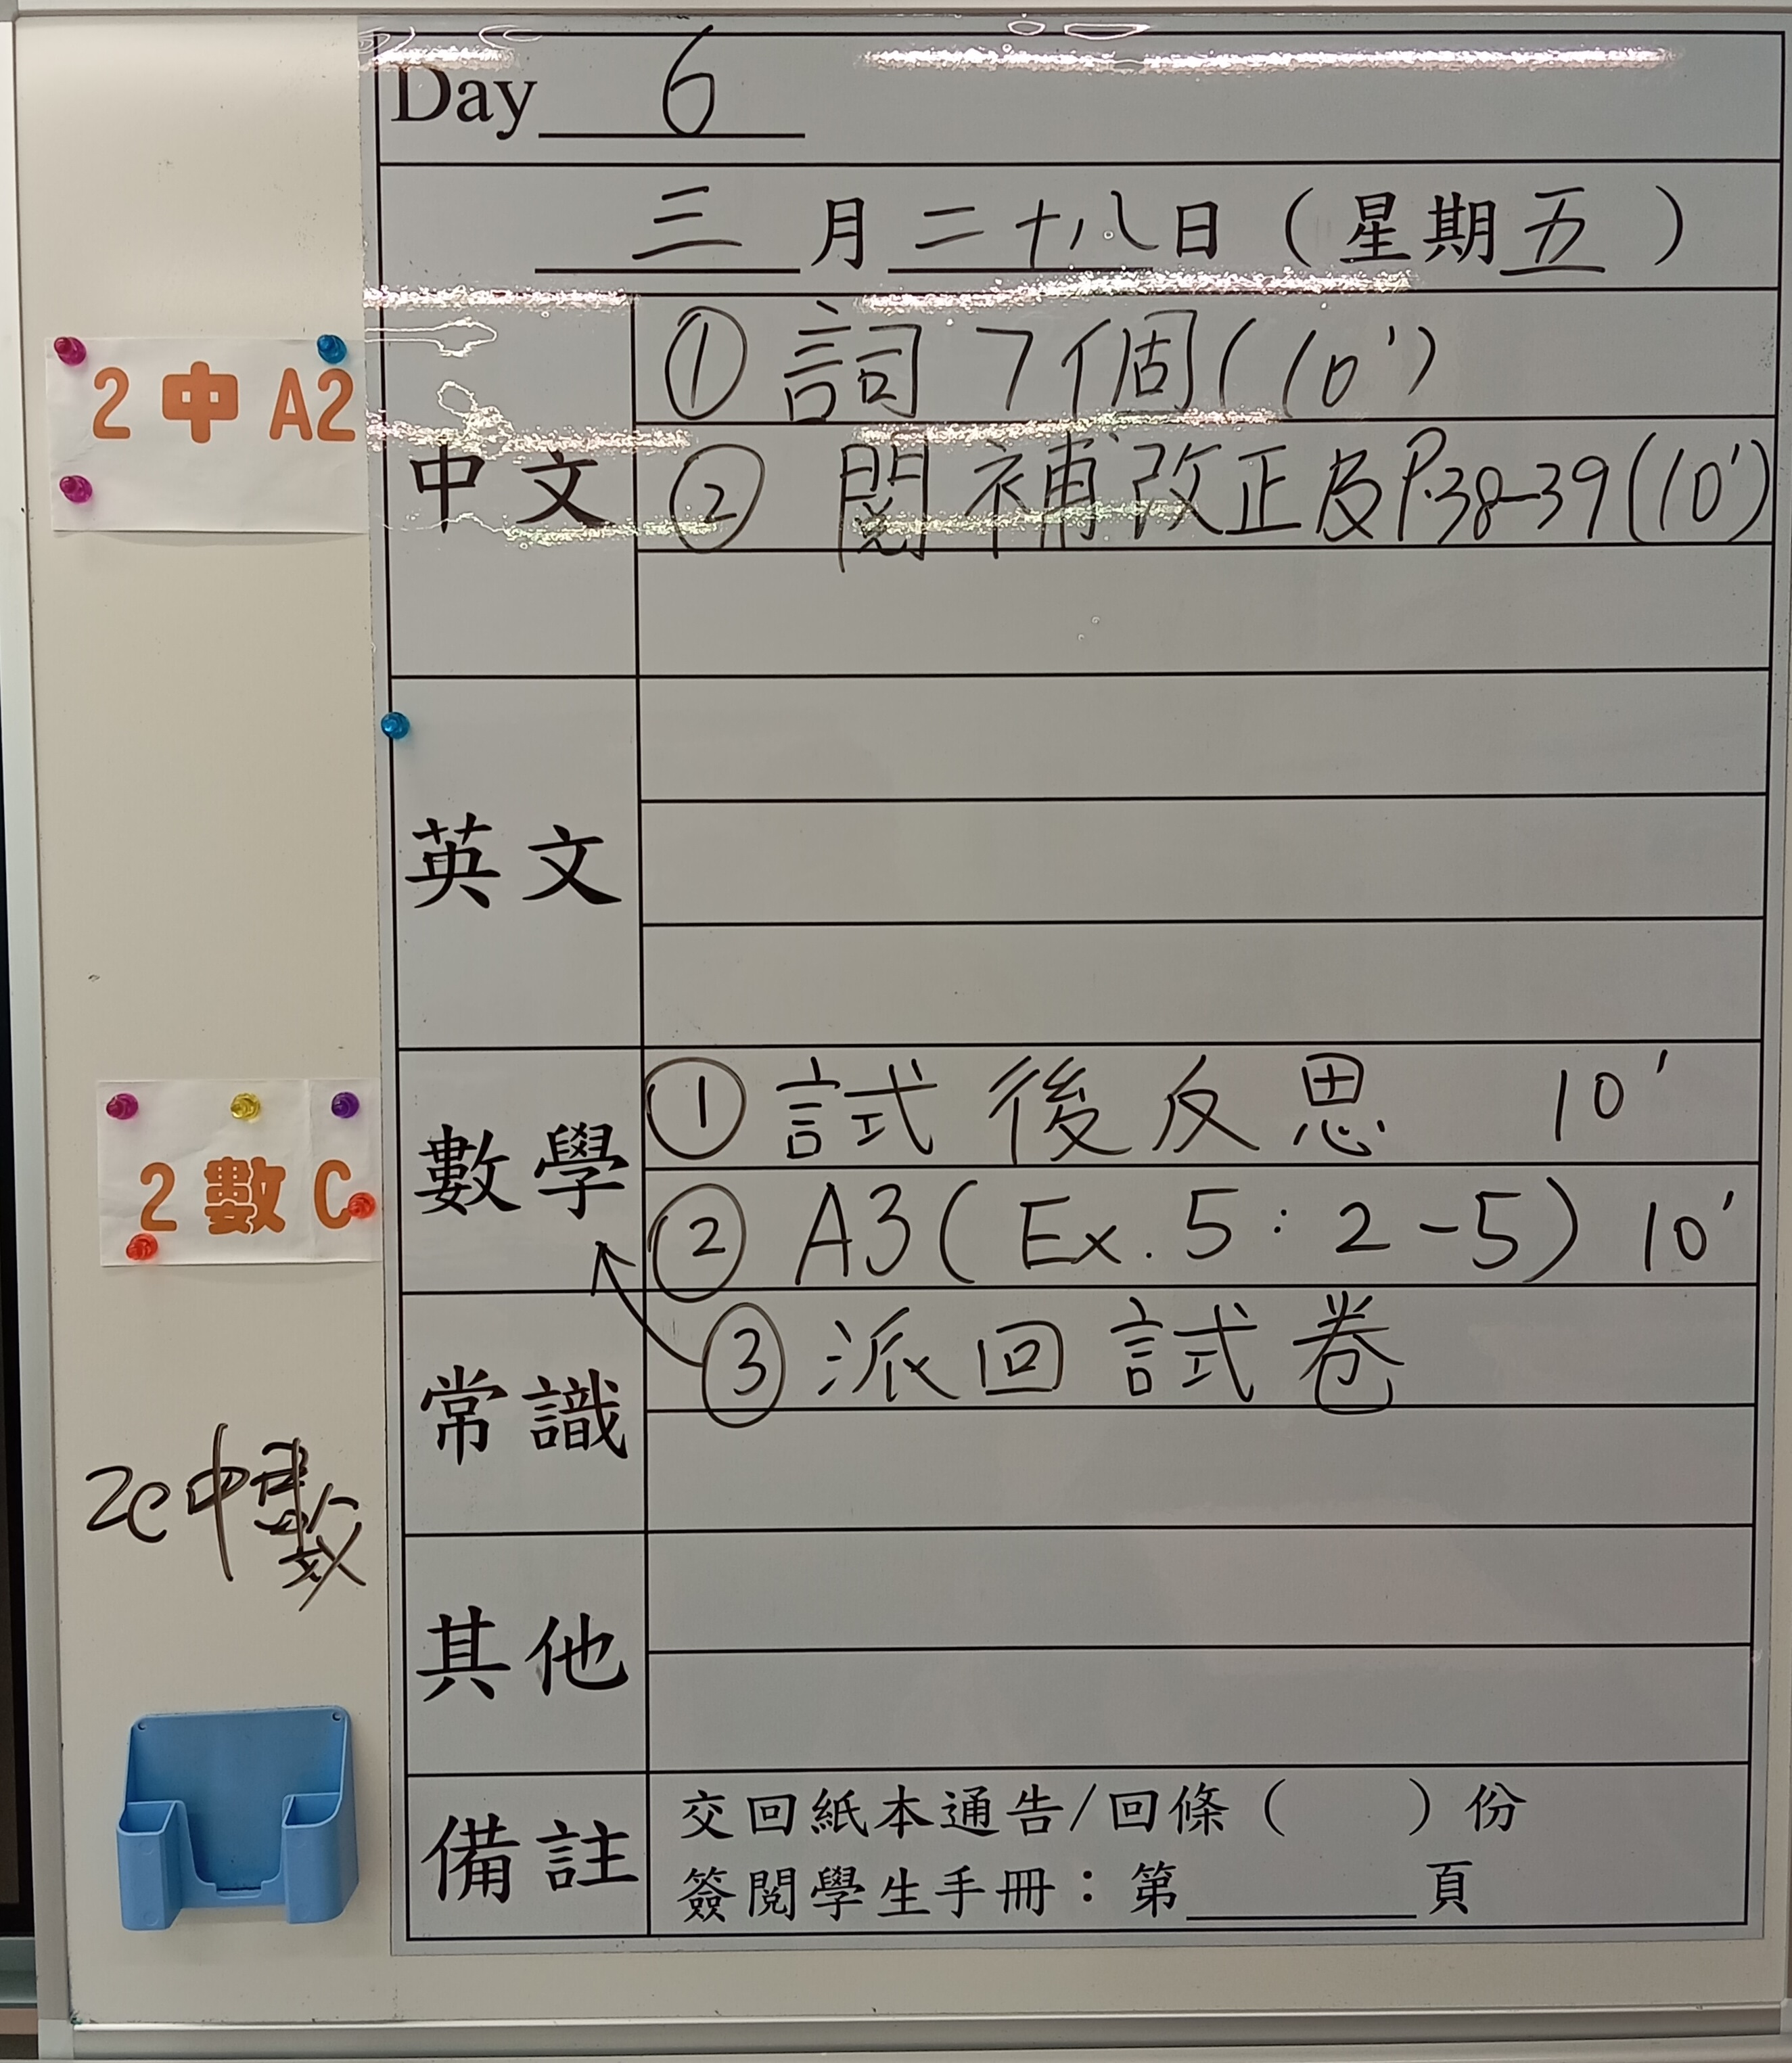 Day 6
三月二十八日（星期五）
2 中 A2
中文
① 詞7個(10')
② 閱補改正及P.38-39(10')
英文
2 數 C
數學
① 試後反思 10'
② A3(Ex.5:2-5) 10'
常識
③ 派回試卷
2C中數
其他
備註
交回紙本通告/回條（ ）份
簽閱學生手冊：第____頁